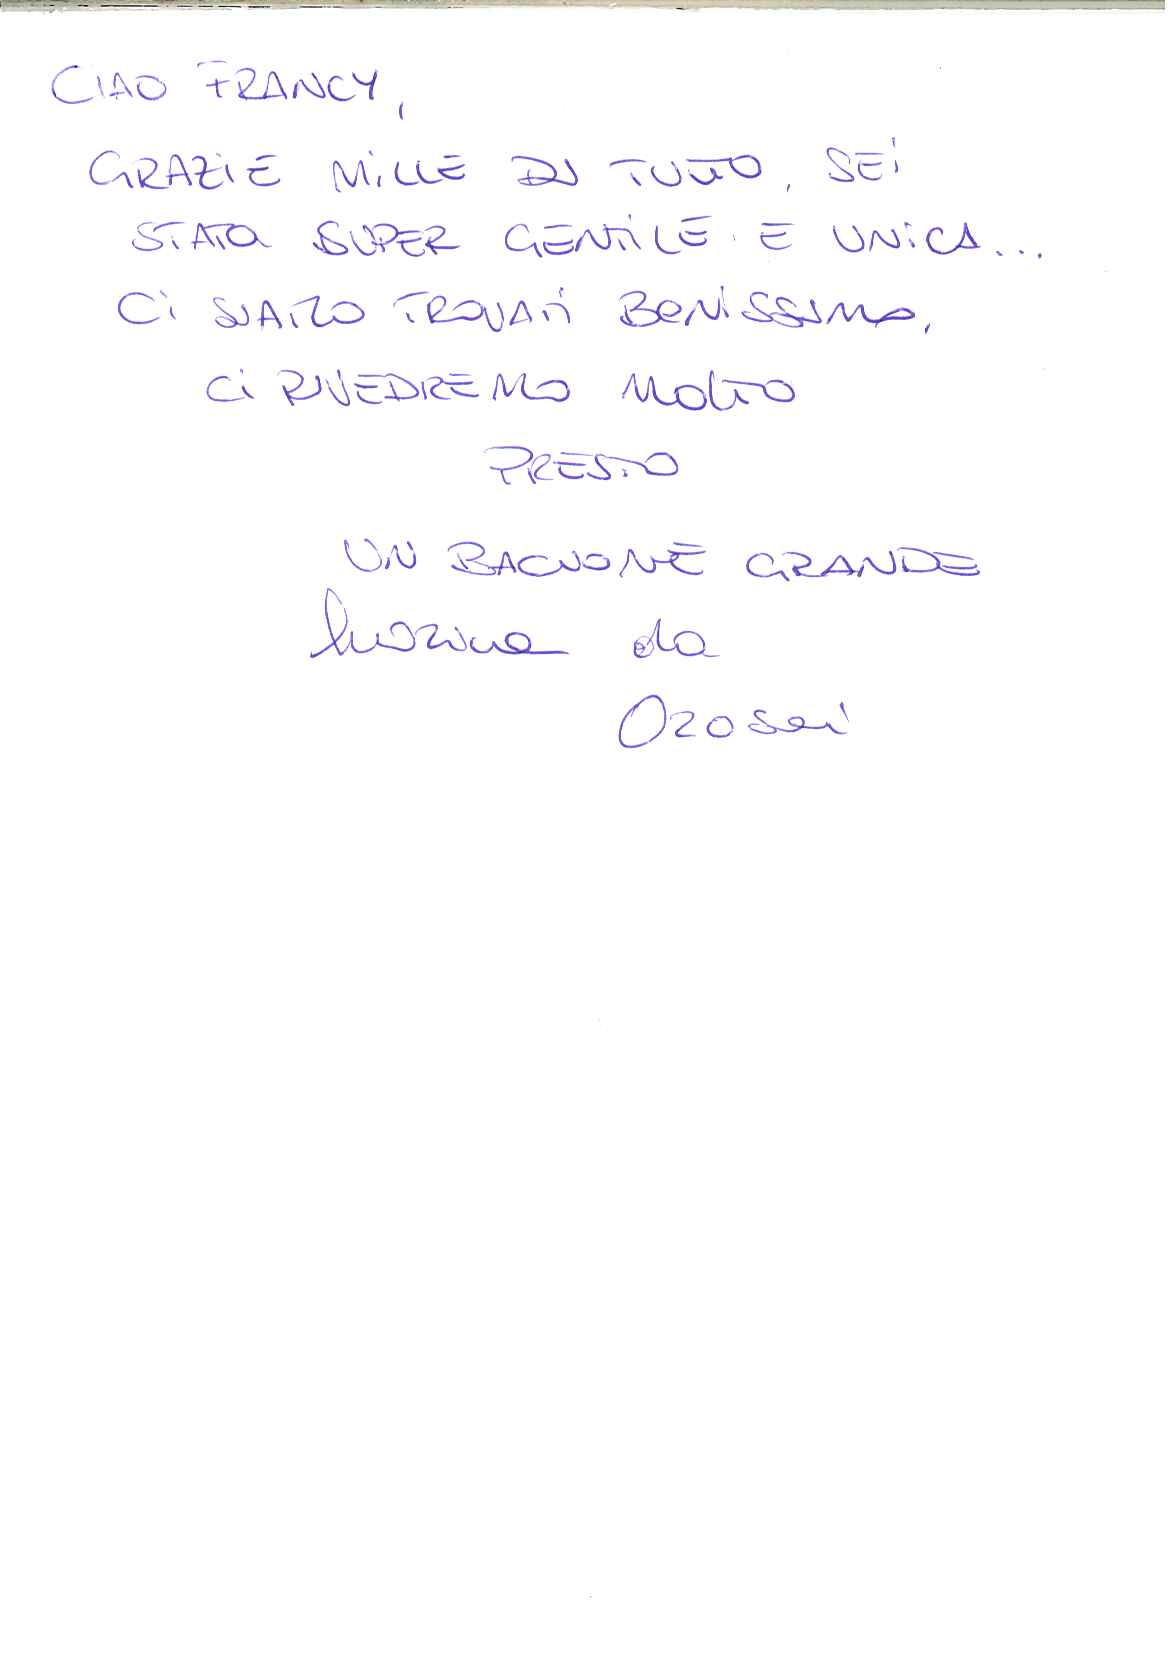 CIAO FRANCY,
GRAZIE MILLE DI TUTTO, SEI
STATA SUPER GENTILE E UNICA...
Ci SIAMO TROVATI BENISSIMO,
Ci RIVEDREMO MOLTO
PRESTO
UN BACIONE GRANDE
da
Orosei